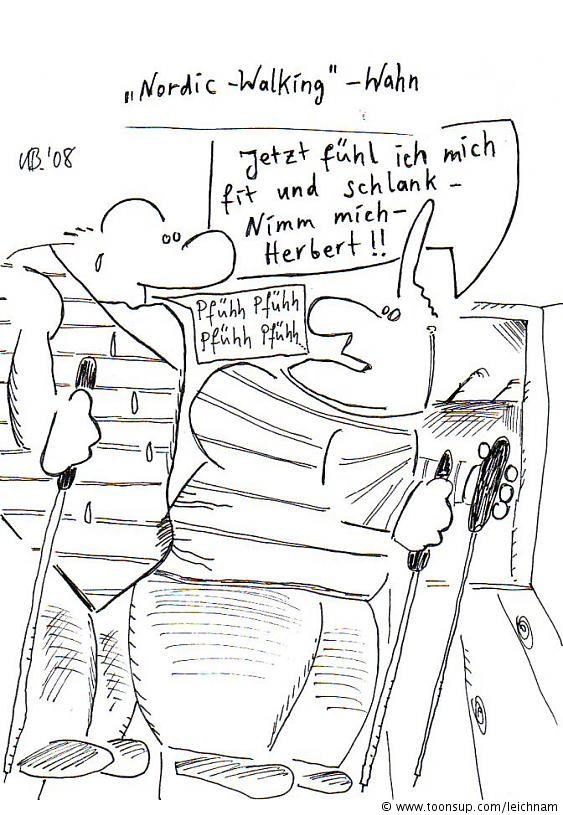 „Nordic-Walking"-Wahn
Jetzt fühl ich mich
fit und schlank -
Nimm mich -
Herbert!!
Pfühh Pfühh
Pfühh Pfühh
© www.toonsup.com/leichnam